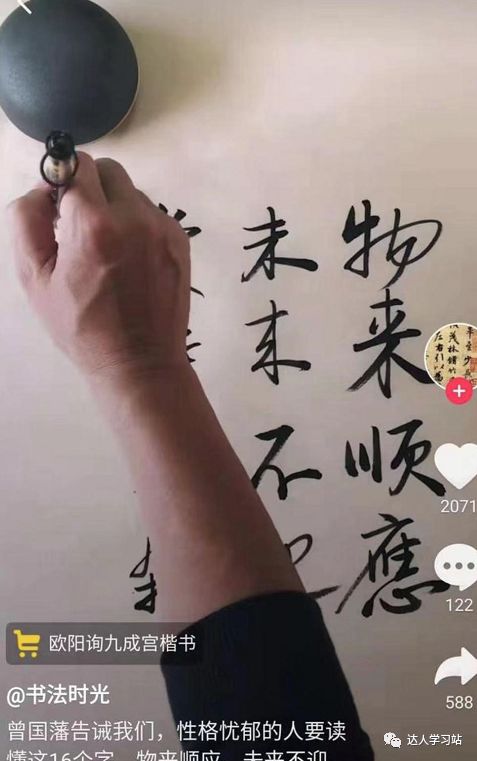 物来顺應
未来不
欧阳询九成宫楷书
@书法时光
曾国藩告诫我们，性格忧郁的人要读
懂这16个字，物来顺应，未来不迎
2071
122
588
达人学习站